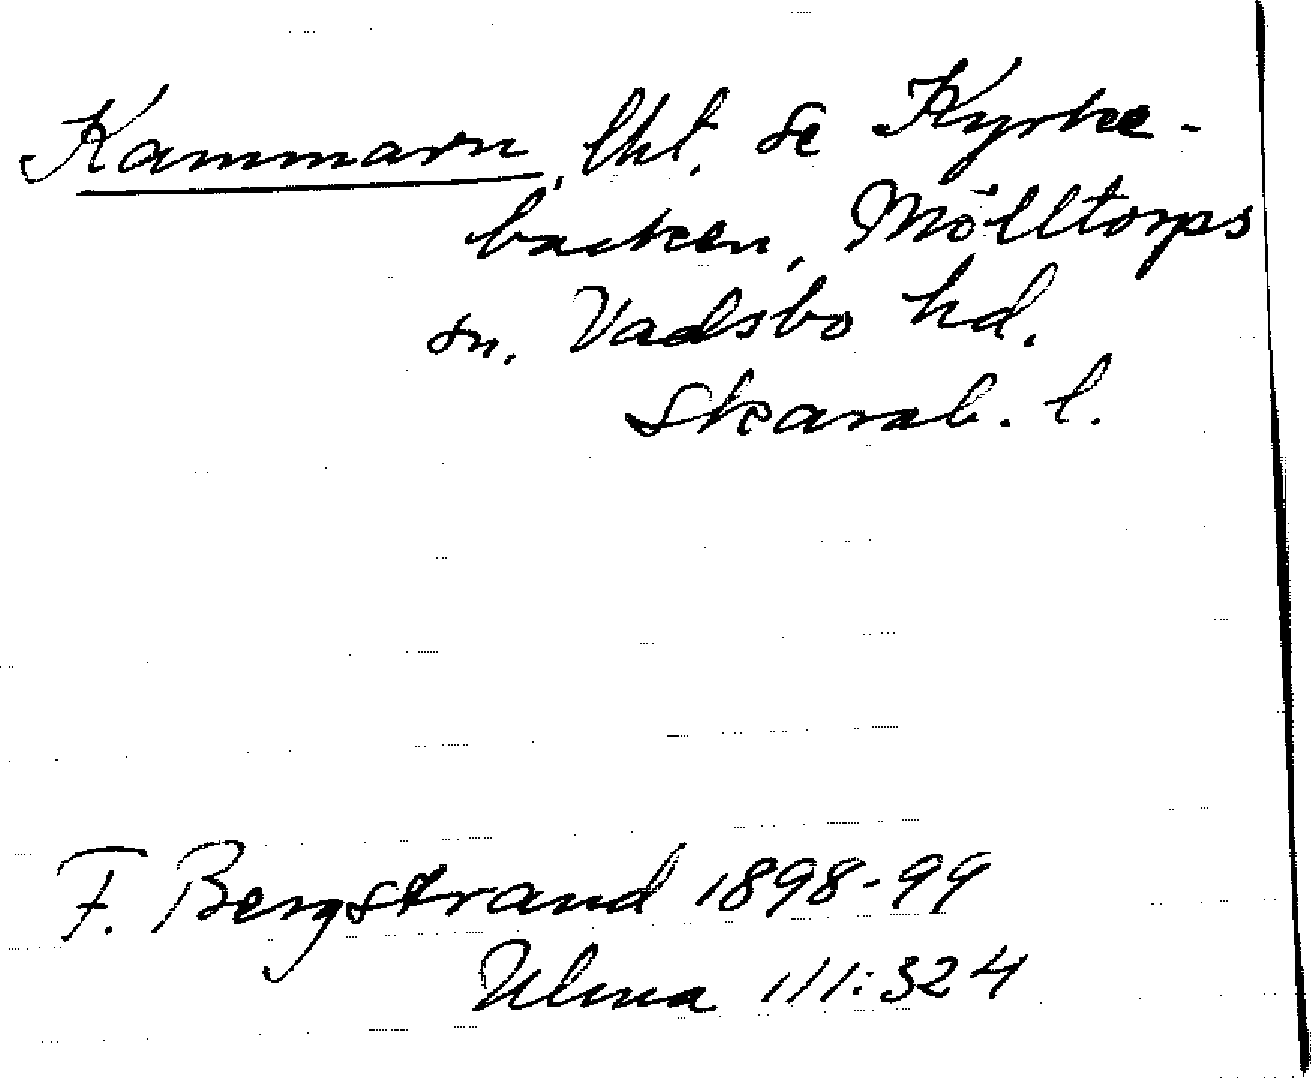 Kammarn, lht. se Kyrke-
backen, Mölltorps
sn. Vadsbo hd.
Skarab. l.
F. Bergstrand 1898-99
Ulma 111:324